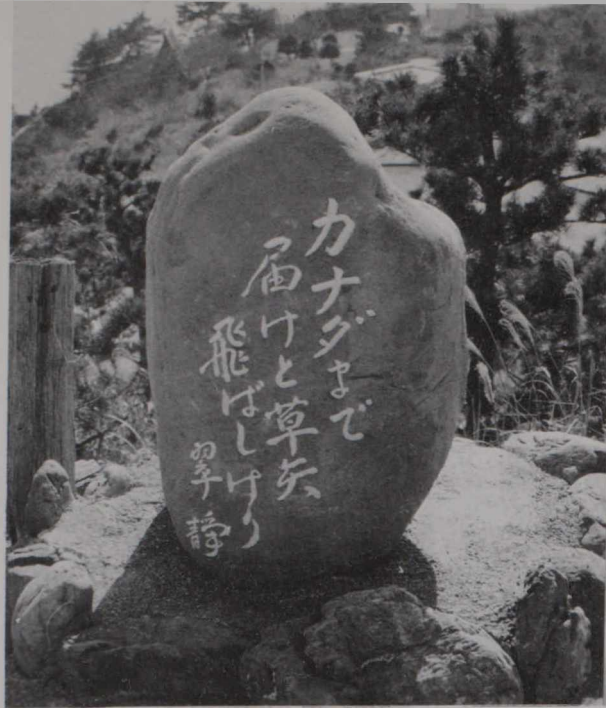 カナダまで
届けと草矢
飛ばしけり
翠静